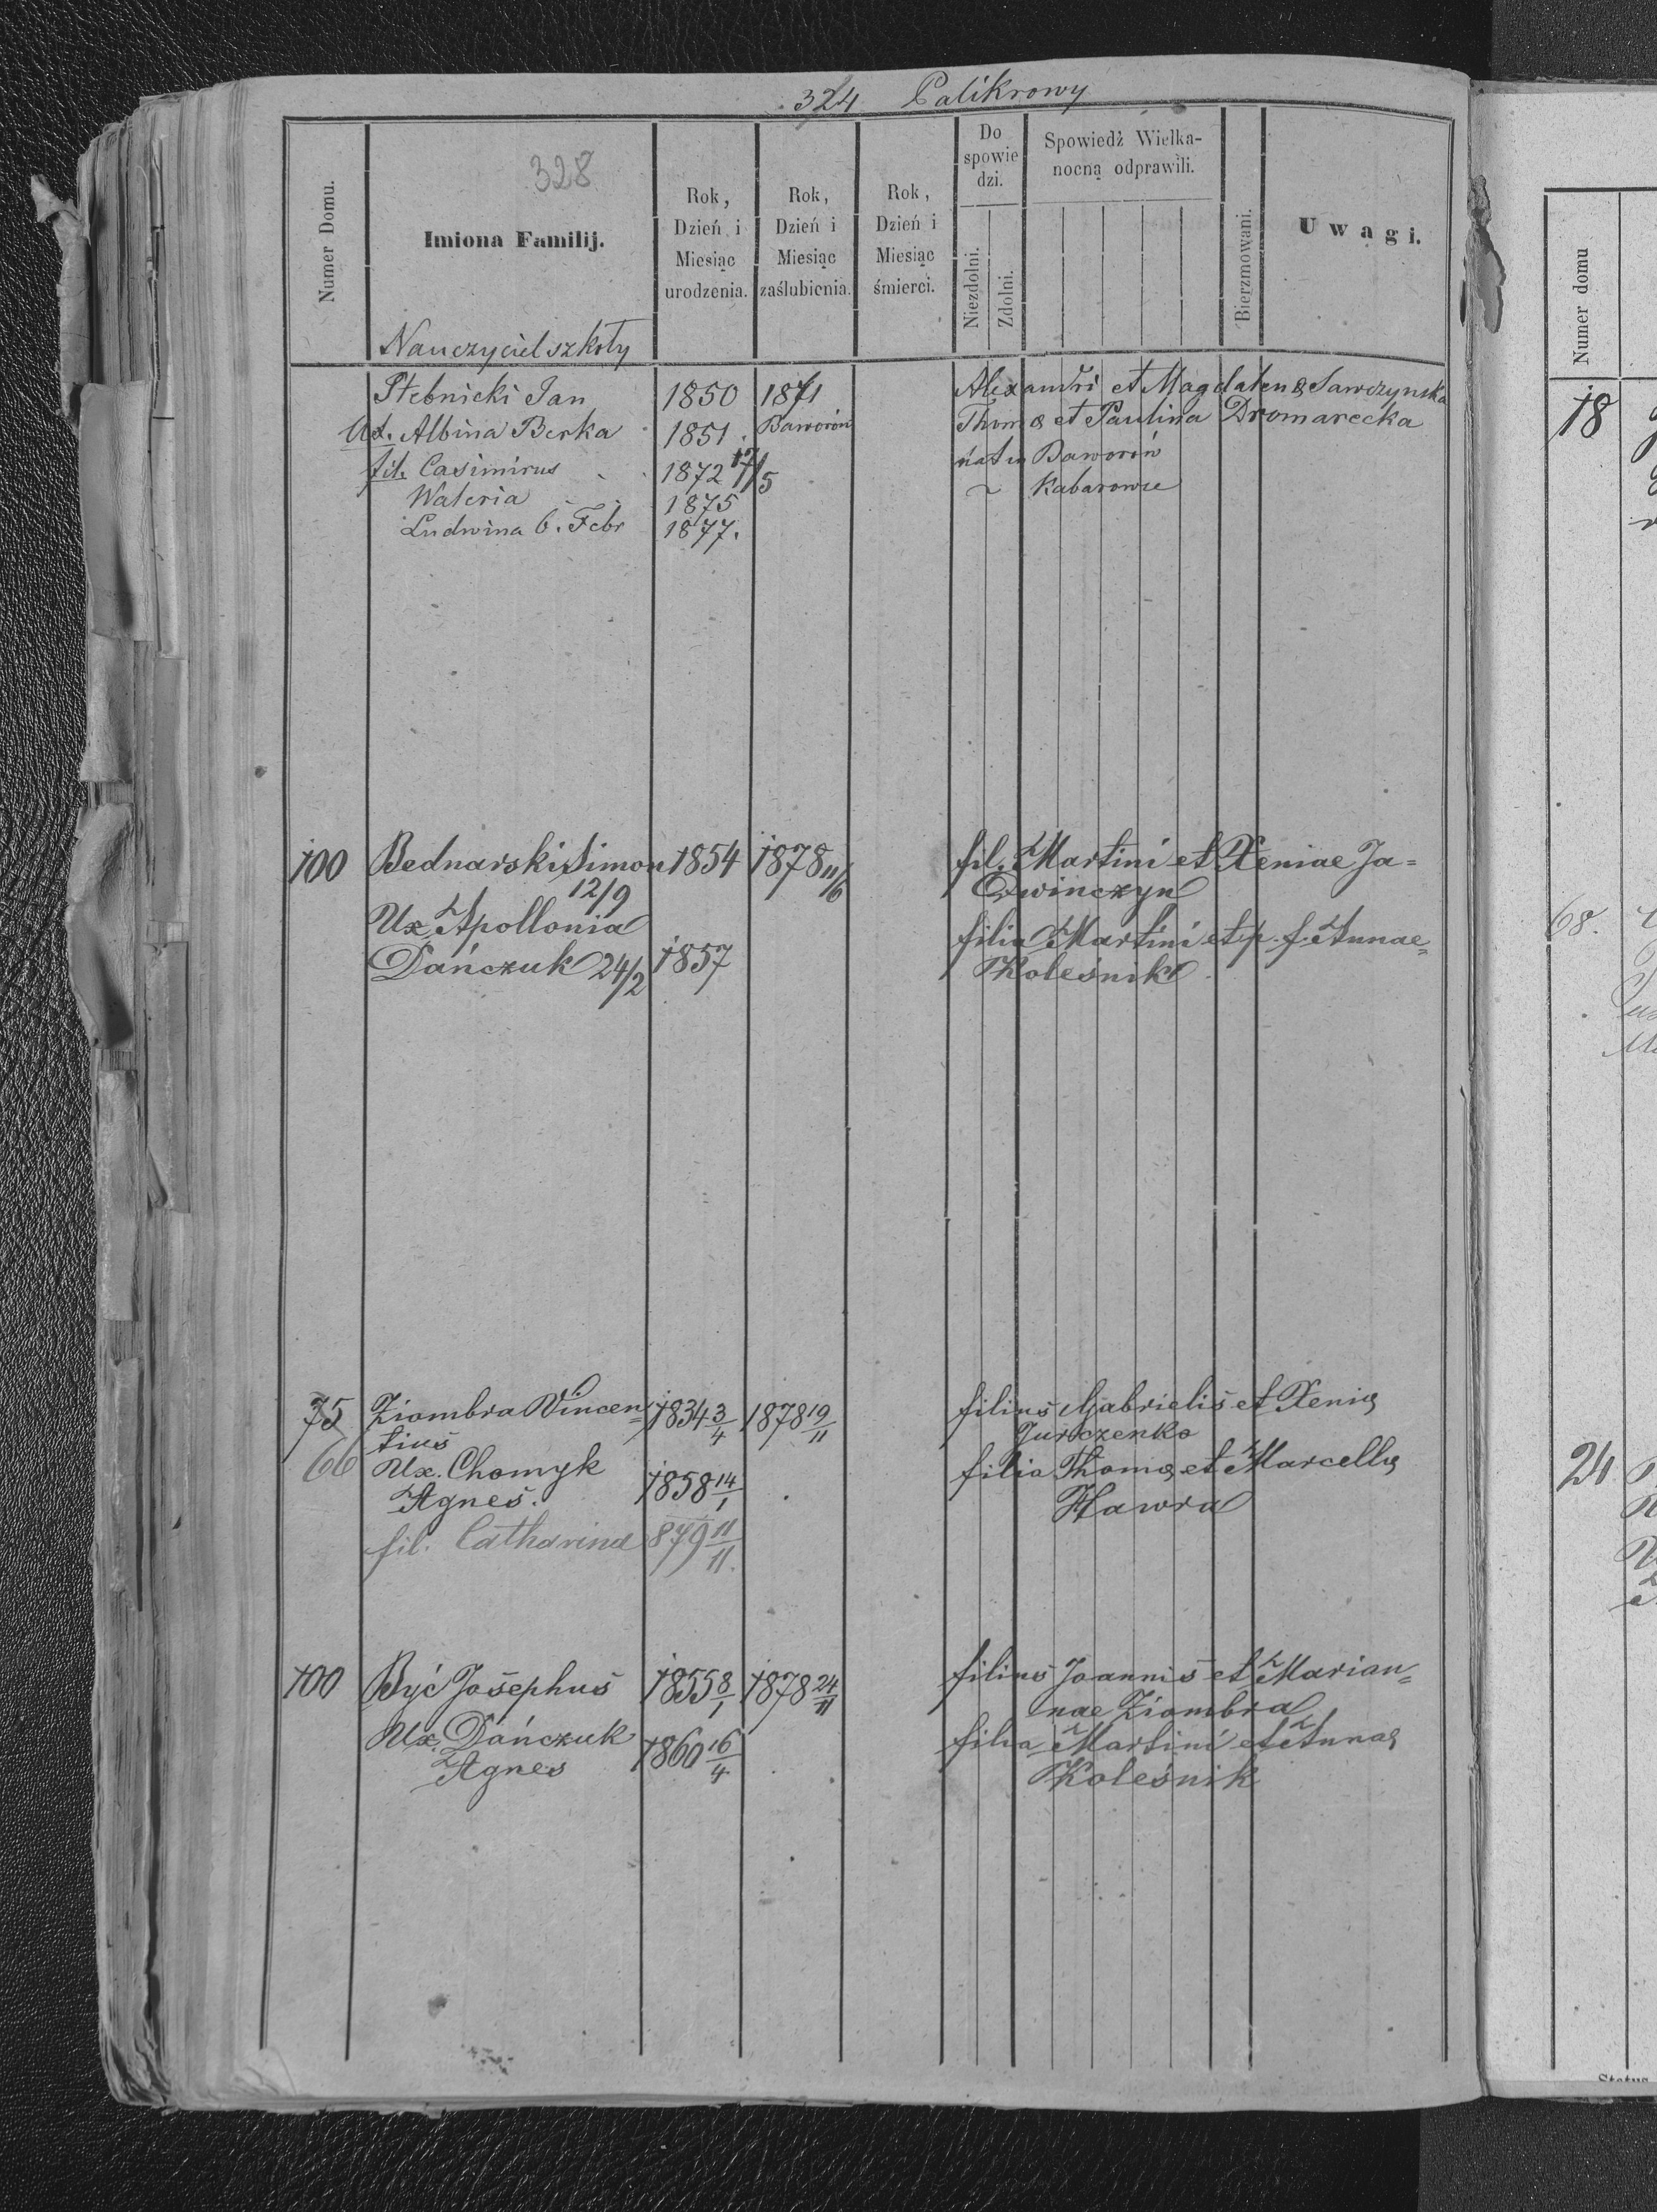 324 Palikrowy
328
Numer Domu.
Imiona Familij.
Rok, Dzień i Miesiąc urodzenia.
Rok, Dzień i Miesiąc zaślubienia.
Rok, Dzień i Miesiąc śmierci.
Do spowie dzi.
Niezdolni.
Zdolni.
Spowiedź Wielka-
nocną odprawili.
Bierzmowani.
Uwagi.
Nauczyciel szkoły
Stebnicki Jan 1850 1871 Alexandri et Magdalenę Sawczynska
Ux. Albina Berka 1851. Baworów Thomę et Paulina Dromarecka
fil. Casimirus 1872 17/5 nat in Baworów
Waleria 1875 ~ Kabarowce
Ludwina 6. Febr 1877.
100 Bednarski Simon 1854 1878 11/6 fil. Martini et Xeniae Ja=
12/9 Dwinczyn
Ux. Apollonia filia Martini et p. f. Annae=
Dańczuk 24/2 1857 Koleśnik
75 Ziombra Vincen= 1834 3/4 1878 19/11 filius Gabrielis et Xenię
tius Jurczenko
66 Ux. Chomyk filia Thomę et Marcellę
Agnes. 1858 14/1 Hawra
fil. Catharina 879 11/11.
100 Być Josephus 1855 8/1 1878 24/11 filius Joannis et Marian=
nae Ziombra
Ux. Dańczuk 1860 16/4 filia Martini et Annaę
Agnes Koleśnik
Numer domu
18
68.
24
Status